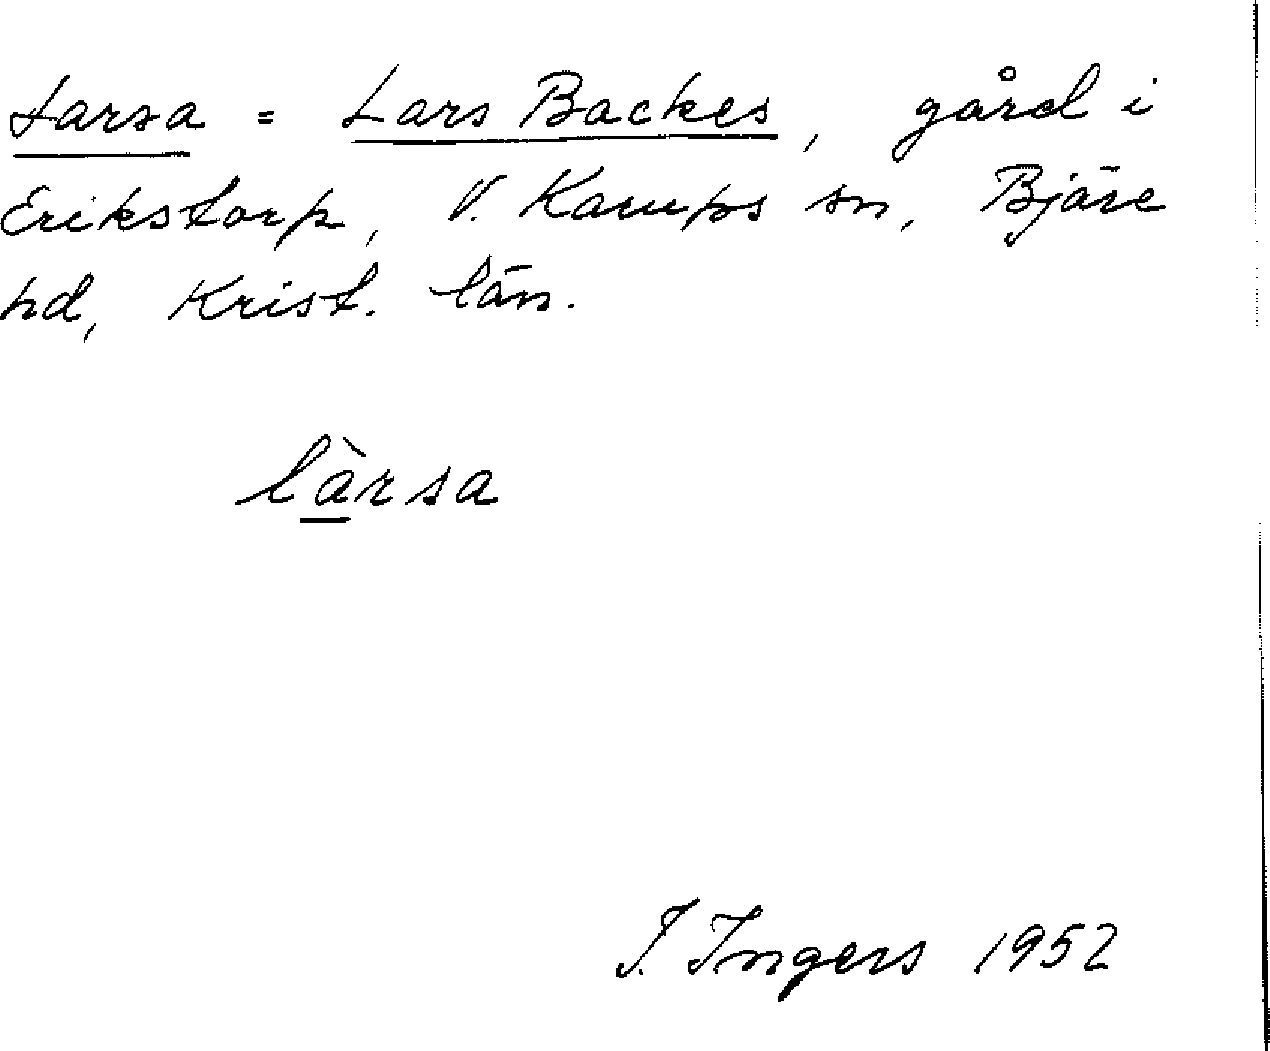 Larsa = Lars Backes, gård i
Erikstorp, V. Karups sn, Bjäre
hd, Krist. län.
làrsa
I. Ingers 1952